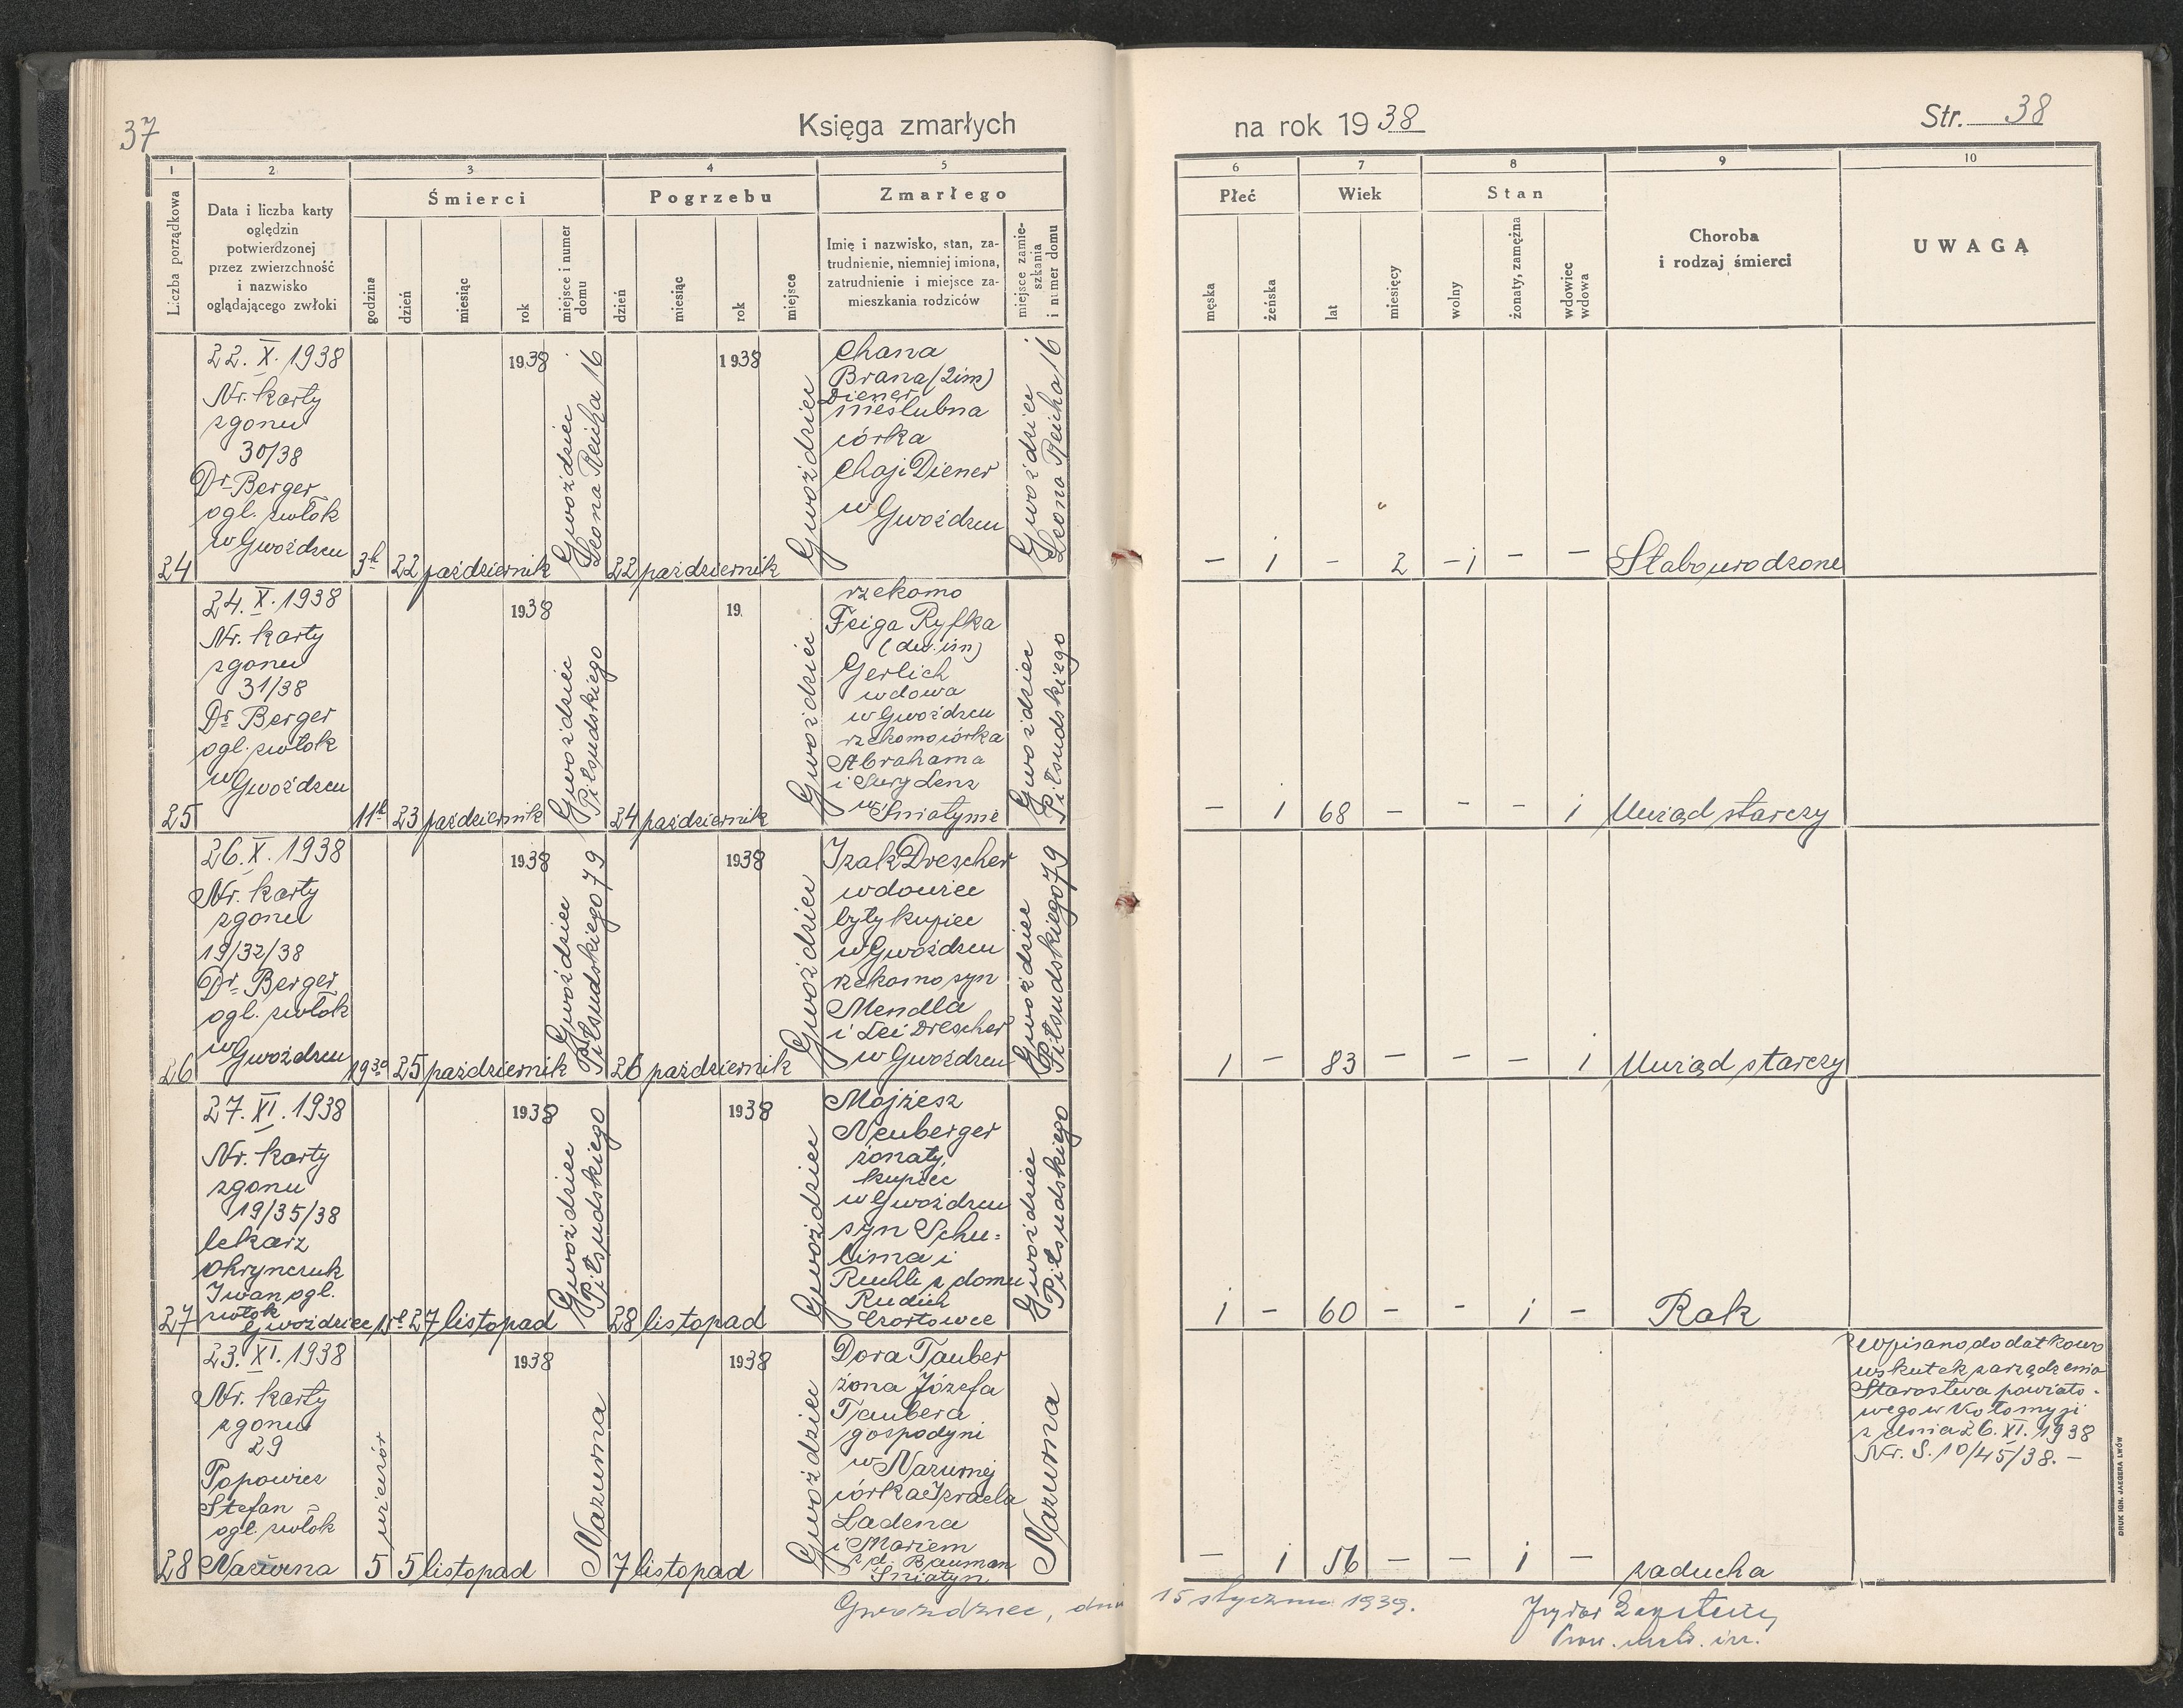 37
Księga zmarłych
na rok 1938
Str. 38
1
2
3
4
5
6
7
8
9
10
Liczba porządkowa
Data i liczba karty
oględzin
potwierdzonej
przez zwierzchność
i nazwisko
oglądającego zwłoki
Śmierci
godzina
dzień
miesiąc
rok
miejsce i numer
domu
Pogrzebu
dzień
miesiąc
rok
miejsce
Zmarłego
Imię i nazwisko, stan, za-
trudnienie, niemniej imiona,
zatrudnienie i miejsce za-
mieszkania rodziców
miejsce zamie-
szkania
i numer domu
Płeć
męska
żeńska
Wiek
lat
miesięcy
Stan
wolny
żonaty, zamężna
wdowiec
wdowa
Choroba
i rodzaj śmierci
UWAGA
24
22. X. 1938
Nr. karty
zgonu
30/38
Dr Berger
ogl. zwłok
w Gwoźdzcu
3h
22
październik
1938
Gwoździec
Leona Reicha 16
22
październik
1938
Gwoździec
Chana
Brana (2im)
Diener
nieślubna
córka
Chaji Diener
w Gwoźdzcu
Gwoździec
Leona Reicha 16
– 1 – 2 – 1 – –
Słabourodzone
25
24. X. 1938
Nr. karty
zgonu
31/38
Dr Berger
ogl. zwłok
w Gwoźdzcu
11h
23
październik
1938
Gwoździec
Piłsudskiego
24
październik
19
Gwoździec
rzekomo
Feiga Ryfka
(dw. im)
Gerlich
wdowa
w Gwoźdzcu
rzekomo córka
Abrahama
i Sury Lenz
w Śniatynie
Gwoździec
Piłsudskiego
– 1 68 – – – 1
Uwiąd starczy
26
26. X. 1938
Nr. karty
zgonu
19/32/38
Dr Berger
ogl. zwłok
w Gwoźdzcu
19 30
25
październik
1938
Gwoździec
Piłsudskiego 79
26
październik
1938
Gwoździec
Izak Drescher
wdowiec
były kupiec
w Gwoźdzcu
rzekomo syn
Mendla
i Lei Drescher
w Gwoźdzcu
Gwoździec
Piłsudskiego 79
1 – 83 – – – 1
Uwiąd starczy
27
27. XI. 1938
Nr. karty
zgonu
19/35/38
lekarz
Ohrynczuk
Iwan ogl.
zwłok
Gwoździec
27
listopad
1938
Gwoździec
Piłsudskiego
28
listopad
1938
Gwoździec
Mojżesz
Neuberger
żonaty,
kupiec
w Gwoźdzcu
syn Schu-
lima i
Ruchli z domu
Rudich
Czortowce
Gwoździec
Piłsudskiego
1 – 60 – – 1 –
Rak
28
23. XI. 1938
Nr. karty
zgonu
29
Popowicz
Stefan
ogl. zwłok
Nazurna
5
wieczór
5
listopad
1938
Nazurna
7
listopad
1938
Gwoździec
Dora Tauber
żona Józefa
Taubera
gospodyni
w Nazurnej
córka Izraela
Ladena
i Mariem
z d. Bauman
Śniatyn
Nazurna
– 1 56 – – 1 –
zaducha
Wpisano dodatkowo
wskutek zarządzenia
Starostwa powiato-
wego w Kołomyji
z dnia 26. XI. 1938
Nr. S. 10/45/38. –
DRUK IGN. JAEGERA LWÓW
Gwozdziec, dnia 15 stycznia 1939.